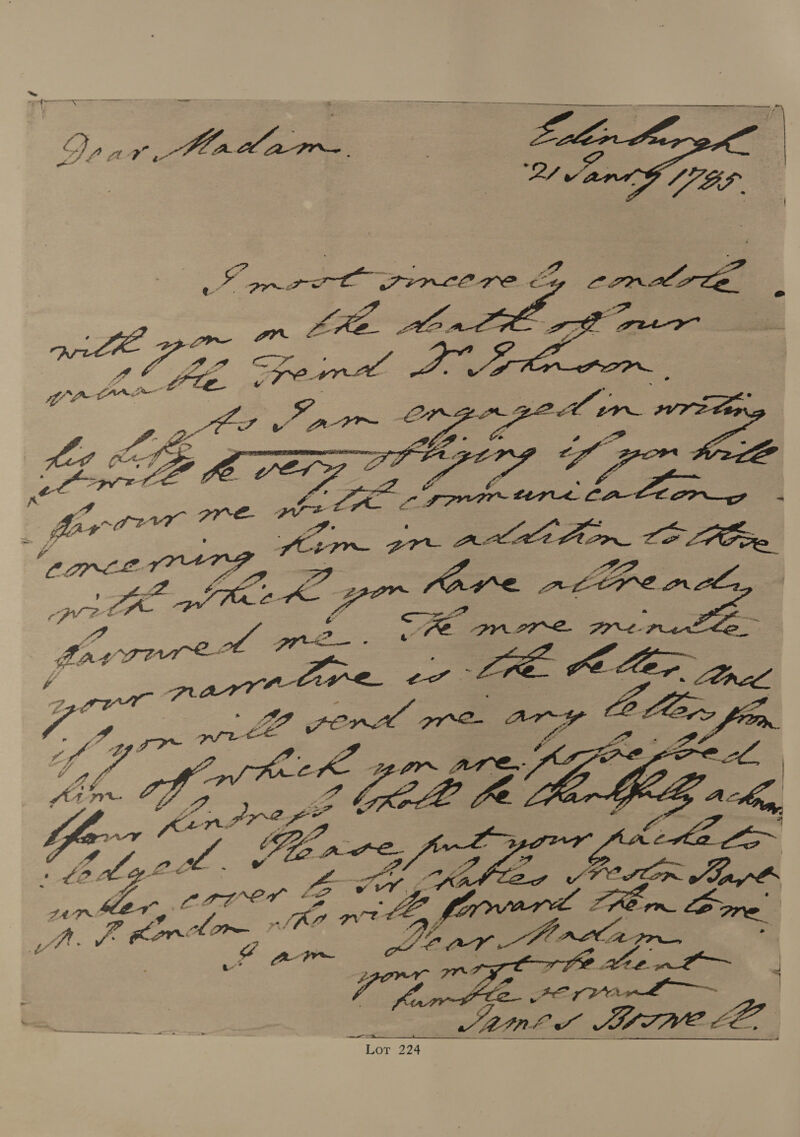 Dear Madam.
Edinburgh
21 Janry 1785.
I most sincerely condole
with you on the death of our
valuable Freind Dr. Johnson.
As I am engaged in writing
his Life
it will be very obliging if you will
favour me with communications
concerning him in addition to those
with which you have allready
favoured me. The more minute
your narrative is the better. And
if you will send me any letters from
him of which you are possessed
Your kindness shall be thankfully acknow
:ledged. Please put your packets
under cover to Sir Charles Preston Bart
M. P. London who will forward them to me.
I am Dear Madam
your most obedient
humble servant
James Boswell.
Lot 224